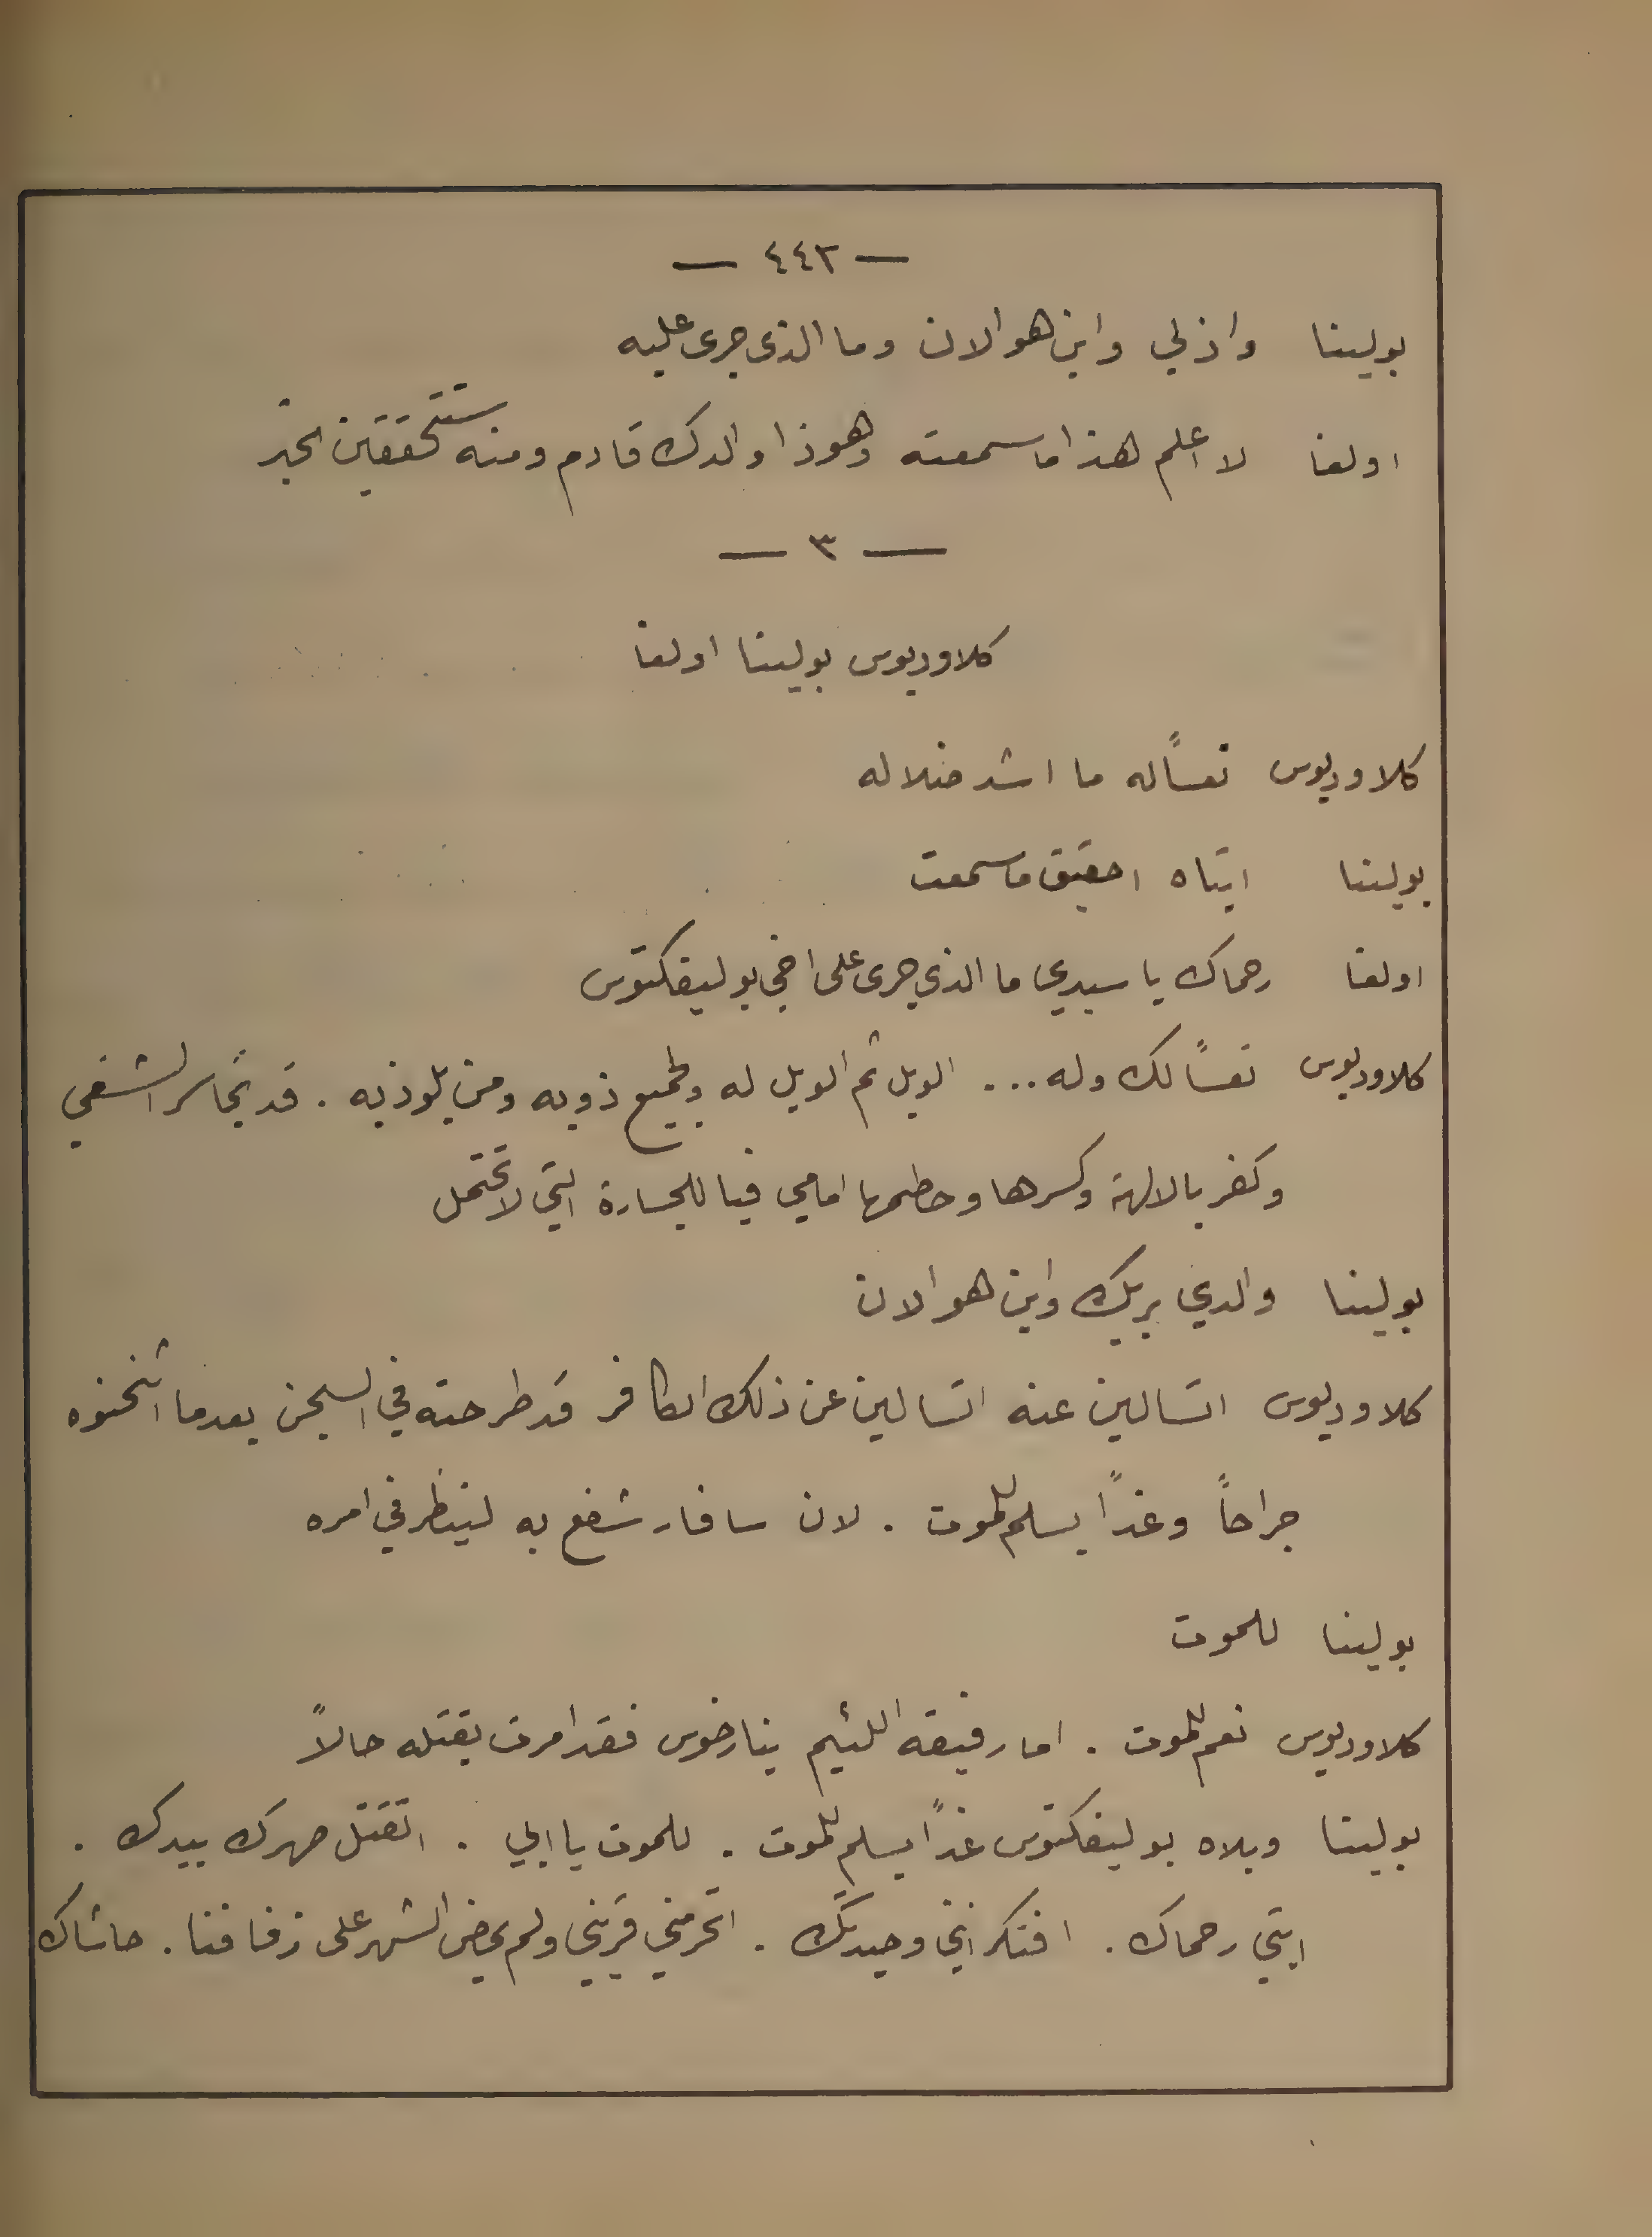 — ٤٤٣ —
بولينا واذلي واين هو الان وما الذي جرى عليه
اولغا لا اعلم هذا ما سمعته وهوذا والدك قادم ومنه ستتحققين الخبر
— ٣ —
كلاوديوس بولينا اولغا
كلاوديوس تعساً له ما اشد ضلاله
بولينا ابتاه احقيق ما سمعت
اولغا رحماك يا سيدي ما الذي جرى على اخي بوليفكتوس
كلاوديوس تعساً لك وله ... الويل ثم الويل له ولجميع ذويه ومن يلوذ به . قد تجاسر الشقي
وكفر بالالهة وكسرها وحطمها امامي فيا للجسارة التي لا تحتمل
بولينا والدي بربك واين هو الان
كلاوديوس اتسالين عنه اتسالين عن ذلك الكافر قد طرحته في السجن بعدما اثخنوه
جراحاً وغداً يسلم للموت . لان سافار شفع به لينظر في امره
بولينا للموت
كلاوديوس نعم للموت . اما رفيقه اللئيم ينارخوس فقد امرت بقتله حالاً
بولينا ويلاه بوليفكتوس غداً يسلم للموت . للموت يا ابي . اتقتل صهرك بيدك .
ابتي رحماك . افتكر انني وحيدتك . اتحرمني قريني ولم يمض الشهر على زفافنا . حاشاك